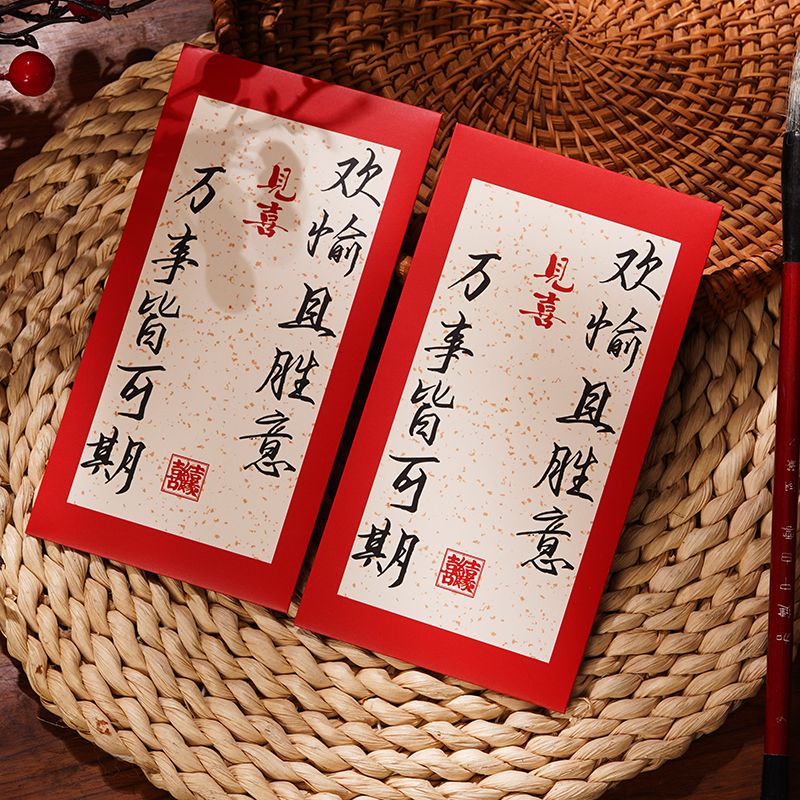 欢愉且胜意
见喜
万事皆可期
欢愉且胜意
见喜
万事皆可期